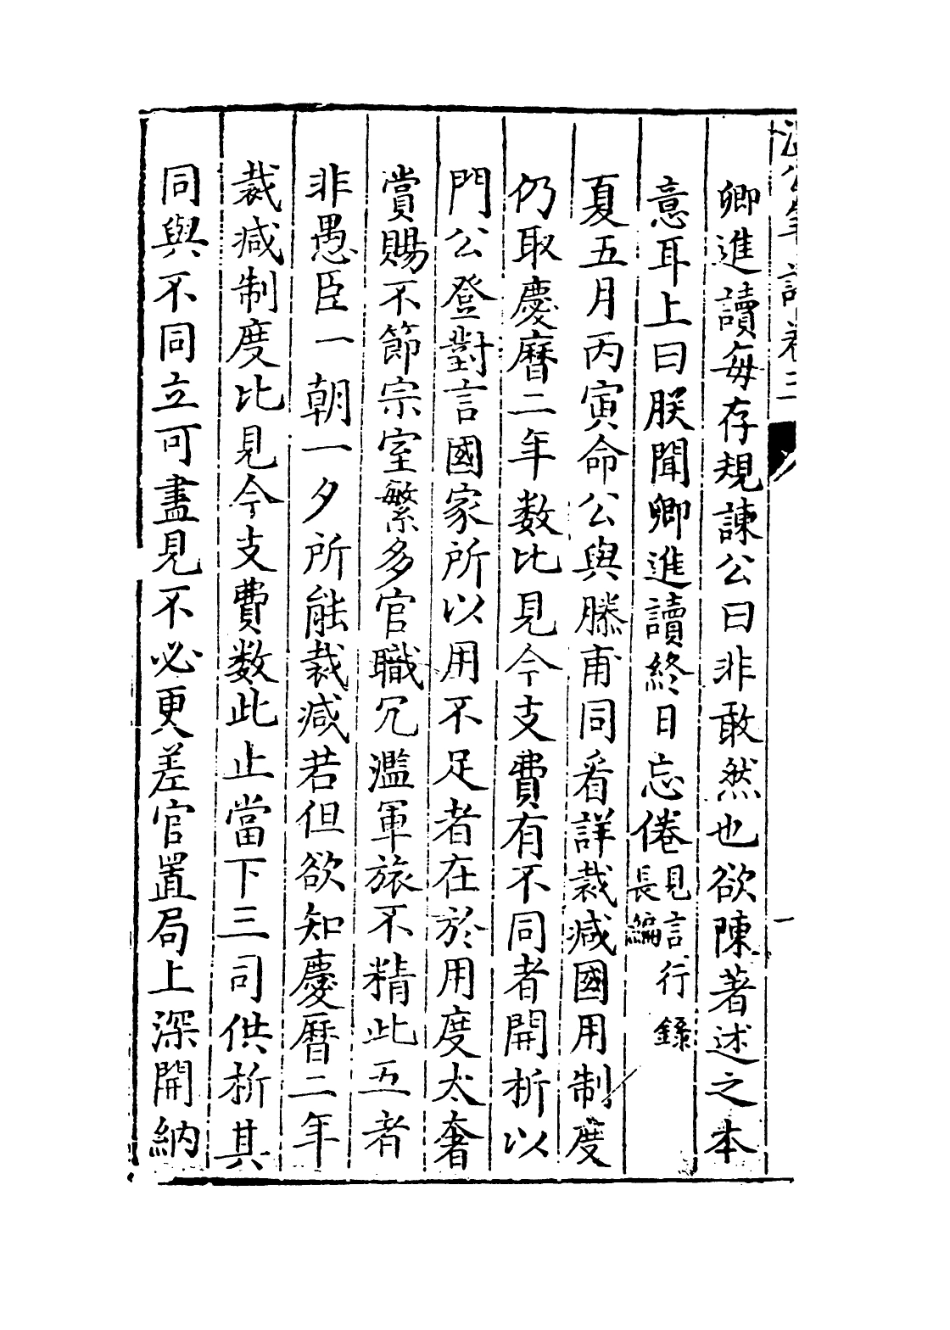 卿進讀每存規諫公曰非敢然也欲陳著述之本
意耳上曰朕聞卿進讀終日忘倦見言行錄長編
夏五月丙寅命公與滕甫同看詳裁减國用制度
仍取慶曆二年数比見今支費有不同者開析以
門公登對言國家所以用不足者在於用度太奢
賞賜不節宗室繁多官職冗濫軍旅不精此五者
非愚臣一朝一夕所能裁减若但欲知慶曆二年
裁减制度比見今支費数此止當下三司供析其
同與不同立可盡見不必更差官置局上深開納